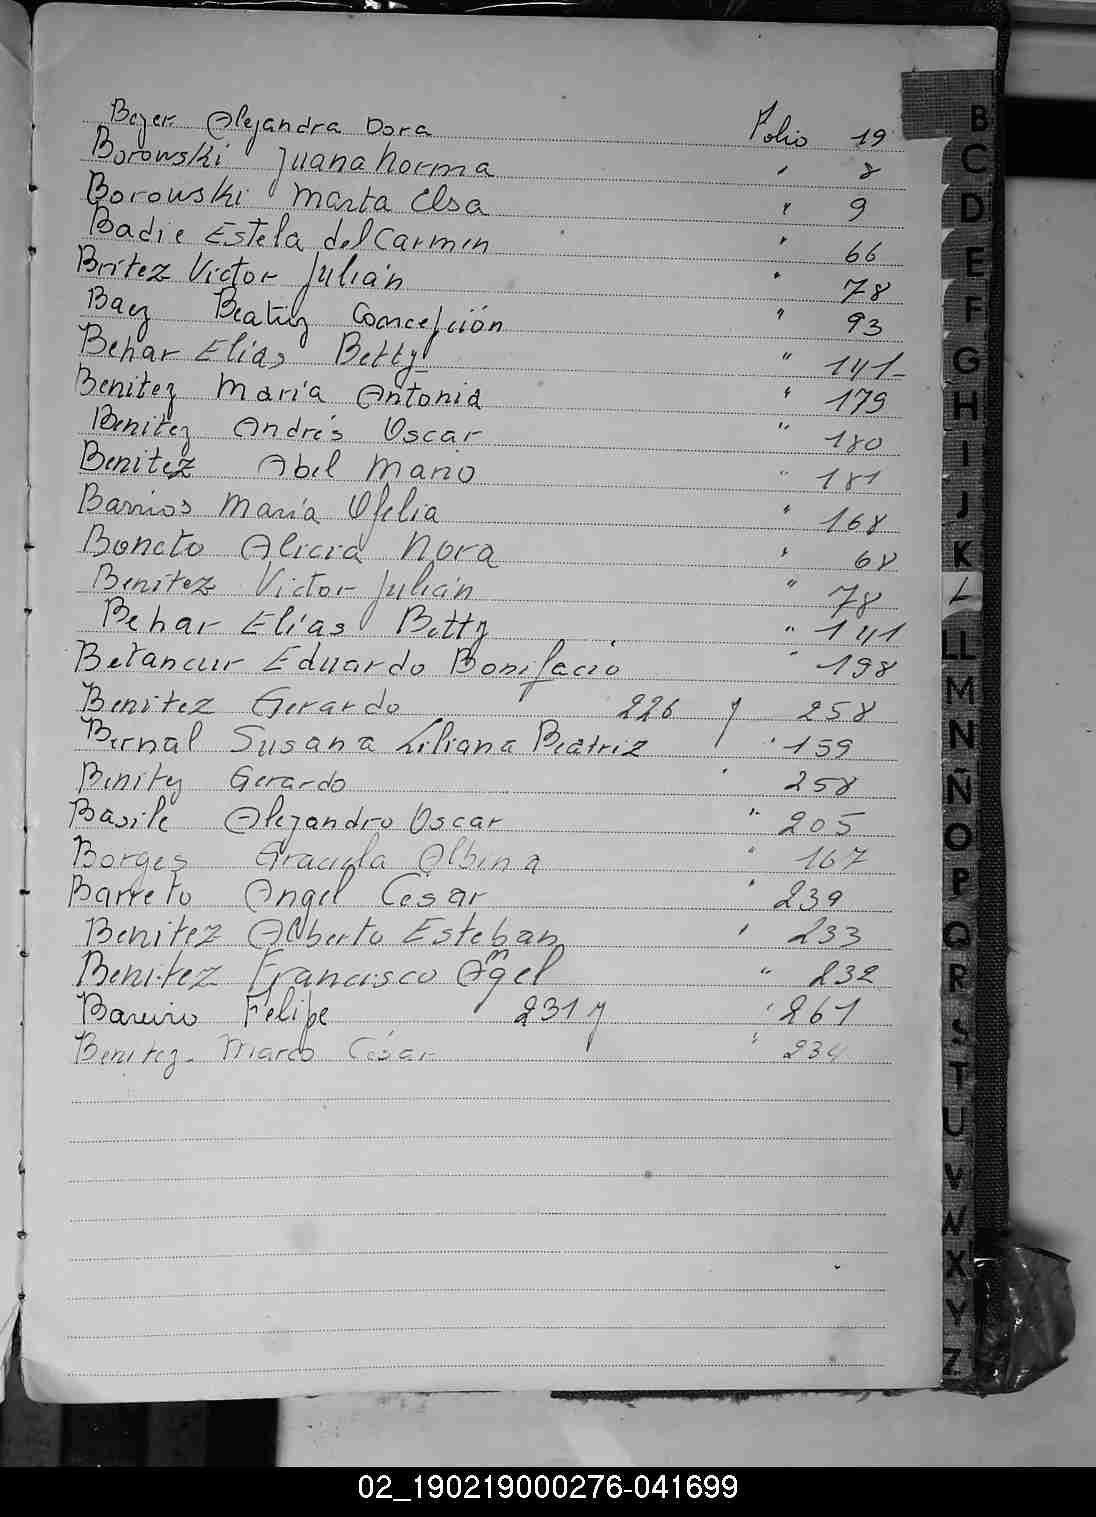 Bejer Alejandra Dora Folio 19
Borowski Juana Norma " 8
Borowski Marta Elsa " 9
Badie Estela del Carmen " 66
Britez Victor Julián " 78
Baez Beatriz Concepción " 93
Behar Elias Betty " 141
Benitez María Antonia " 179
Benitez Andrés Oscar " 180
Benitez Abel Mario " 181
Barrios María Ofelia " 168
Boneto Alicia Nora " 68
Benitez Victor Julián " 78
Behar Elías Betty " 141
Betancur Eduardo Bonifacio " 198
Benitez Gerardo 226 y 258
Bernal Susana Liliana Beatriz " 159
Benitez Gerardo " 258
Basile Alejandro Oscar " 205
Borges Graciela Albina " 167
Barreto Angel Cesar " 239
Benitez Alberto Esteban " 233
Benitez Francisco Agel " 232
Bareiro Felipe 231 y " 261
Benitez Marco César " 234
B
C
D
E
F
G
H
I
J
K
L
LL
M
N
Ñ
O
P
Q
R
S
T
U
V
W
X
Y
Z
02_190219000276-041699